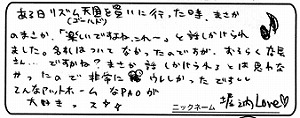 ある日リズム天国を買いに行った時、まさか
(ゴールド)
のまさか、「楽しいですよね、これー」と話しかけられ
ました。名札はついてなかったのですが、おそらく店員
さん…ですかね？まさか話しかけられるとは思わな
かったので非常にウレしかったですしい
こんなアットホームなPAOが
大好きっス
ニックネーム 堀内Love♡